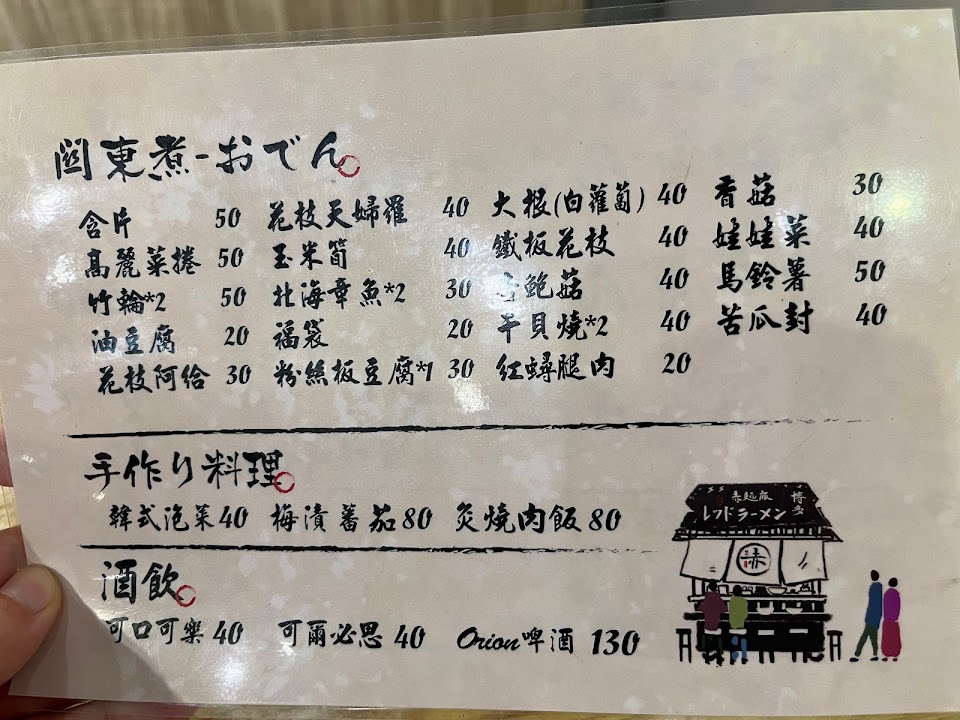 関東煮-おでん
含片 50 花枝天婦羅 40 大根(白蘿蔔) 40 香菇 30
高麗菜捲 50 玉米筍 40 鐵板花枝 40 娃娃菜 40
竹輪*2 50 北海章魚*2 30 鮑菇 40 馬鈴薯 50
油豆腐 20 福袋 20 干貝燒*2 40 苦瓜封 40
花枝阿給 30 粉絲板豆腐*1 30 紅蟳腿肉 20
手作り料理
韓式泡菜40 梅漬蕃茄80 炙燒肉飯80
酒飲
可口可樂 40 可爾必思 40 Orion啤酒 130
赤麵廠 博多
レッドラーメン
赤